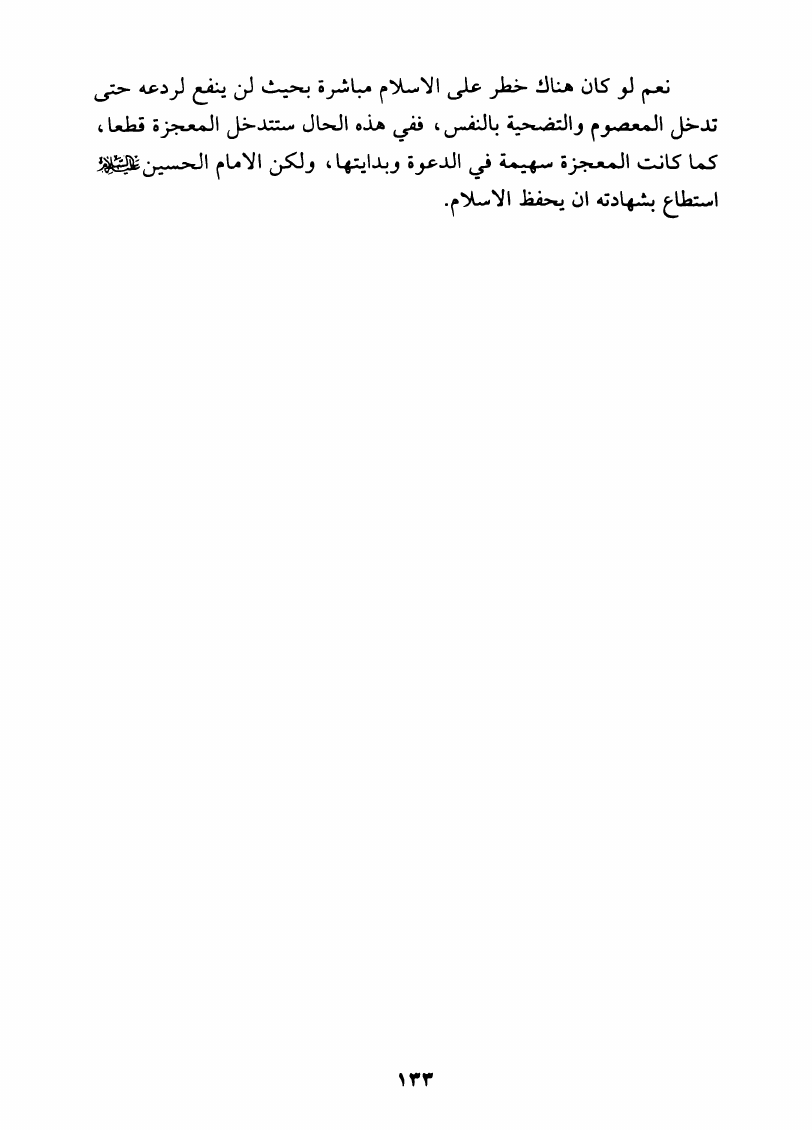 نعم لو كان هناك خطر على الاسلام مباشرة بحيث لن ينفع لردعه حتى
تدخل المعصوم والتضحية بالنفس، ففي هذه الحال ستتدخل المعجزة قطعا،
كما كانت المعجزة سهيمة في الدعوة وبدايتها، ولكن الامام الحسين عليه السلام
استطاع بشهادته ان يحفظ الاسلام.
١٣٣